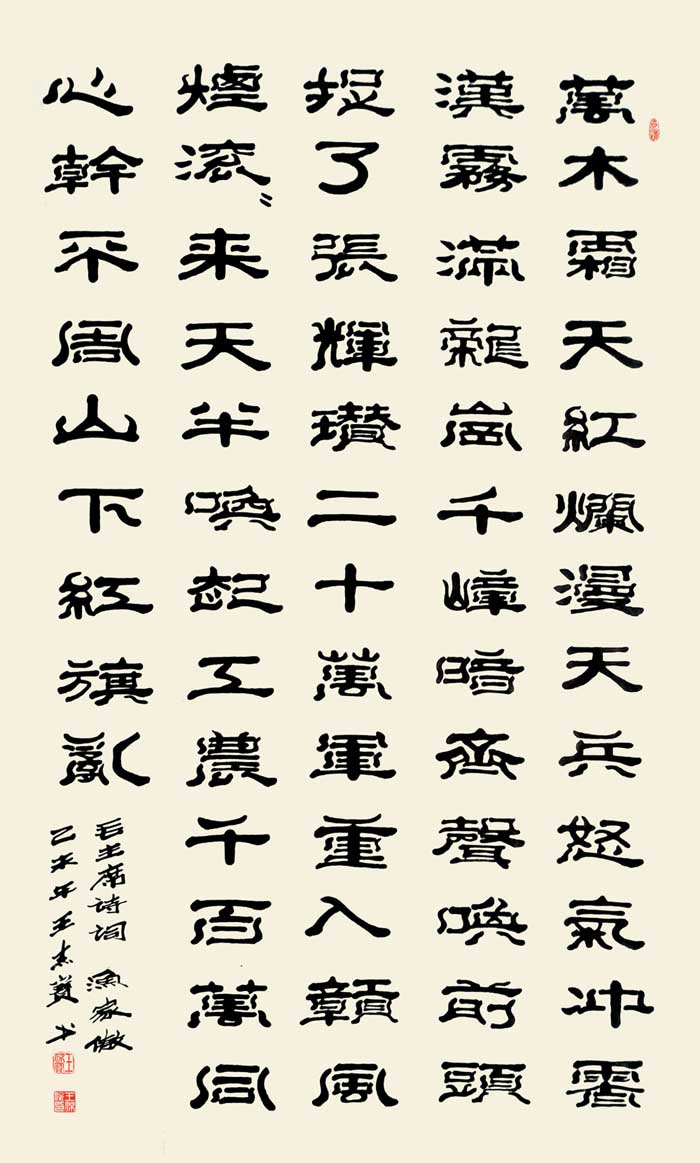 萬木霜天紅爛漫天兵怒氣冲霄
漢霧滿龍崗千嶂暗齊聲喚前頭
捉了張輝瓚二十萬軍重入贛風
煙滾〻来天半喚起工農千百萬同
心幹不周山下紅旗亂
毛主席詩詞 漁家傲
乙未年王